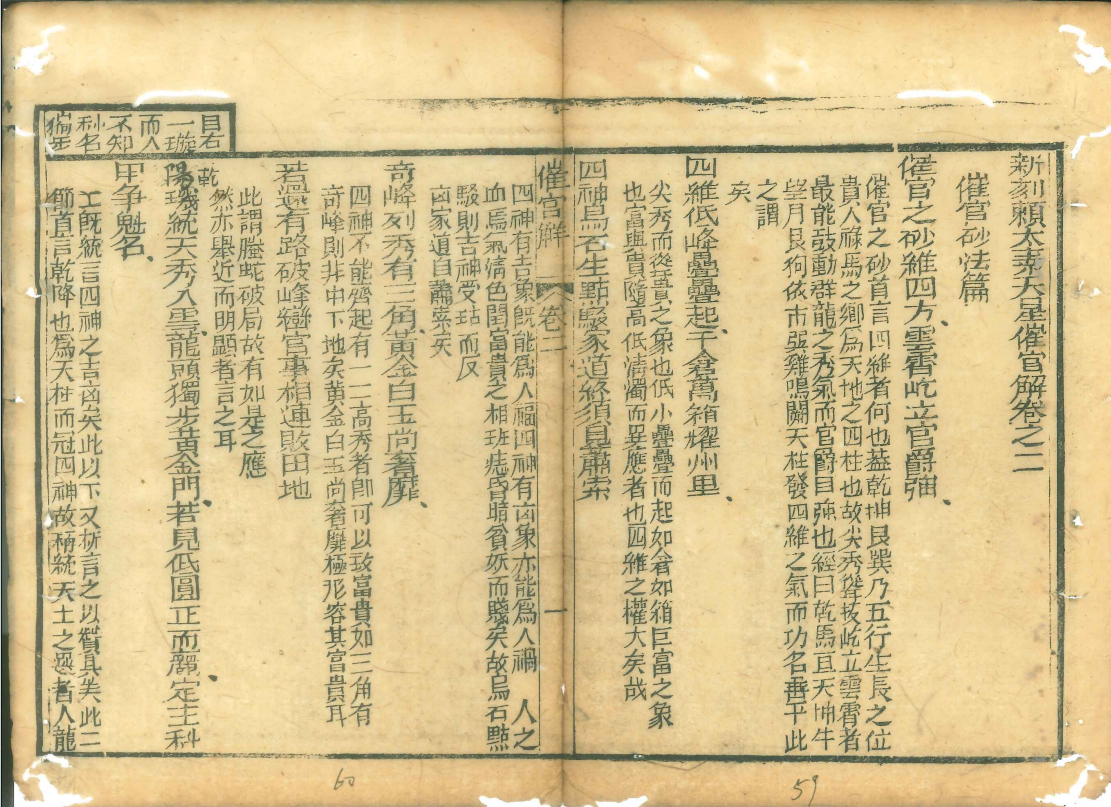 新刻賴太素天星催官解卷之二
催官砂法篇
催官之砂維四方雲霄屹立官爵強
催官之砂首言四維者何也蓋乾坤艮巽乃五行生長之位
貴人祿馬之鄉為天地之四柱也故尖秀聳拔屹立雲霄者
最能鼓動群龍之秀氣而官爵自強也經曰乾馬亘天坤牛
望月艮狗依市巫雞鳴闕天柱發四維之氣而功名晝平此
之謂
矣
四維低峰疊疊起千倉萬箱耀州里
尖秀而聳貴之象也低小疊疊而起如倉如箱巨富之象
也富與貴隨高低清濁而異應者也四維之權大矣哉
四神烏石生點緊家道終須見蕭索
催官解 卷二 一
四神有吉象既能為人福四神有凶象亦能為人禍 人之
血馬氣清色閏富貴之相班痣昏暗貧妖而賤矣故烏石點
緊則吉神受玷而反
凶家道自蕭索矣
奇峰列秀有三角黃金白玉尚奢靡
四神不能齊起有一二高秀者卽可以致富貴如三角有
奇峰則非中下地矣黃金白玉尚奢靡極形容其富貴耳
若還有路破峰巒官事相連敗田地
此謂螣蛇破局故有如是之應
然亦舉近而明顯者言之耳
乾
陽璣統天秀入雲龍頭獨步黃金門若見低圓正而麗定主科
甲爭魁名
上既統言四神之吉凶矣此以下又析言之以質其失此二
節直言乾降也為天柱而冠四神故稱統天土之選者人龍
目右
一璇
而人
不知
利名
59
60